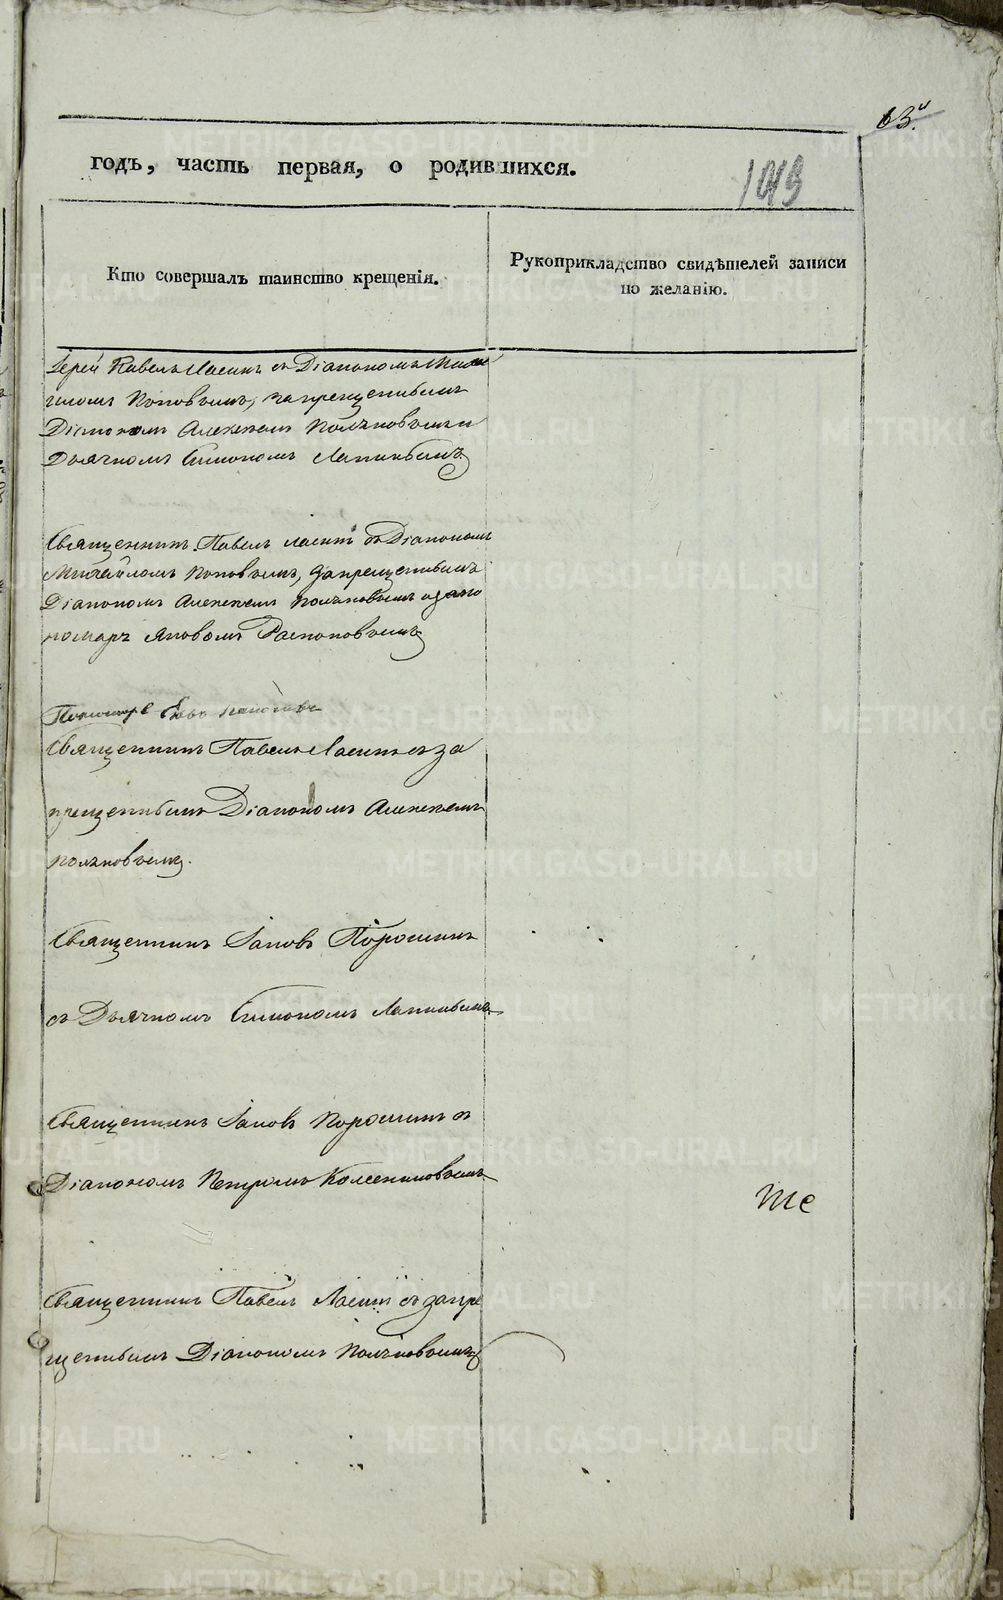 63.
годъ, часть первая, о родившихся.
1013
Кто совершалъ таинство крещенія.
Рукоприкладство свидѣтелей записи
по желанію.
Іерей Павелъ Ласинъ съ Діакономъ Миха
иломъ Поповымъ, запрещеннымъ
Діакономъ Алексѣемъ Поляковымъ и
Дьячкомъ Симономъ Лапинымъ
Священникъ Павелъ Ласинъ съ Діакономъ
Михайломъ Поповымъ, Запрещеннымъ
Діакономъ Алексѣемъ Поляковымъ и
номарь Яковомъ Распоповымъ
Пономарь
Священникъ Павелъ Ласинъ съ за
прещеннымъ Діакономъ Алексѣемъ
Поляковымъ.
Священникъ Іаковъ Порошинъ
съ Дьячкомъ Симономъ Лапинымъ
Священникъ Іаковъ Порошинъ съ
Діакономъ Петромъ Колесниковымъ
те
Священникъ Павелъ Ласинъ съ запре
щеннымъ Діакономъ Поляковымъ
METRIKI.GASO-URAL.RU